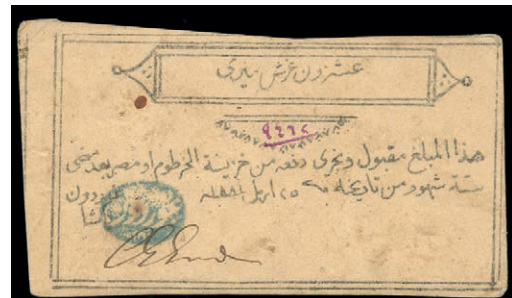 عشرون غرش ميرى
٩٤٦٤
هذا المبلغ مقبول ويجرى دفعه من خزينة الخرطوم او مصر بعد مضى
ستة شهور من تاريخه ٢٥ ابريل ١٨٨٤
غوردون
باشا